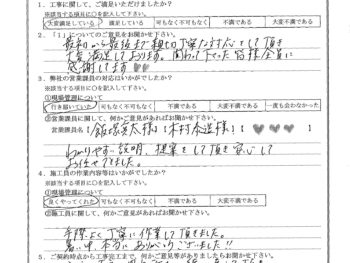 1. 工事に関して、ご満足いただけましたか?
※該当する項目に○を記入して下さい。
大変満足している 満足している 可もなく不可もなく 不満である 大変不満である
2. 「1」についてのご意見をお聞かせ下さい。
最初から最後まで親切丁寧な対応をして頂き
大変満足しております。関わって下さった皆様全員に
感謝してます
3. 弊社の営業課員の対応はいかがでしたか?
※該当する項目に○を記入して下さい。
①現場管理について
行き届いていた 可もなく不可もなく 不満である 大変不満である 一度も会わなかった
②営業課員に関して、何かご意見があればお聞かせ下さい。
営業課員名( 飯塚 様 木村 様 )
わかりやすい説明、提案をして頂き安心して
お任せできました。
4. 施工員の作業内容等はいかがでしたか?
※該当する項目に○を記入して下さい。
①現場管理について
良くやってくれた 可もなく不可もなく 不満である 大変不満である
②施工員に関して、何かご意見があればお聞かせ下さい。
手際よく丁寧に作業して頂きました。
暑い中、本当にありがとうございました!!
5. ご契約時点から工事完工まで、何かご意見等がありましたらお聞かせ下さい。